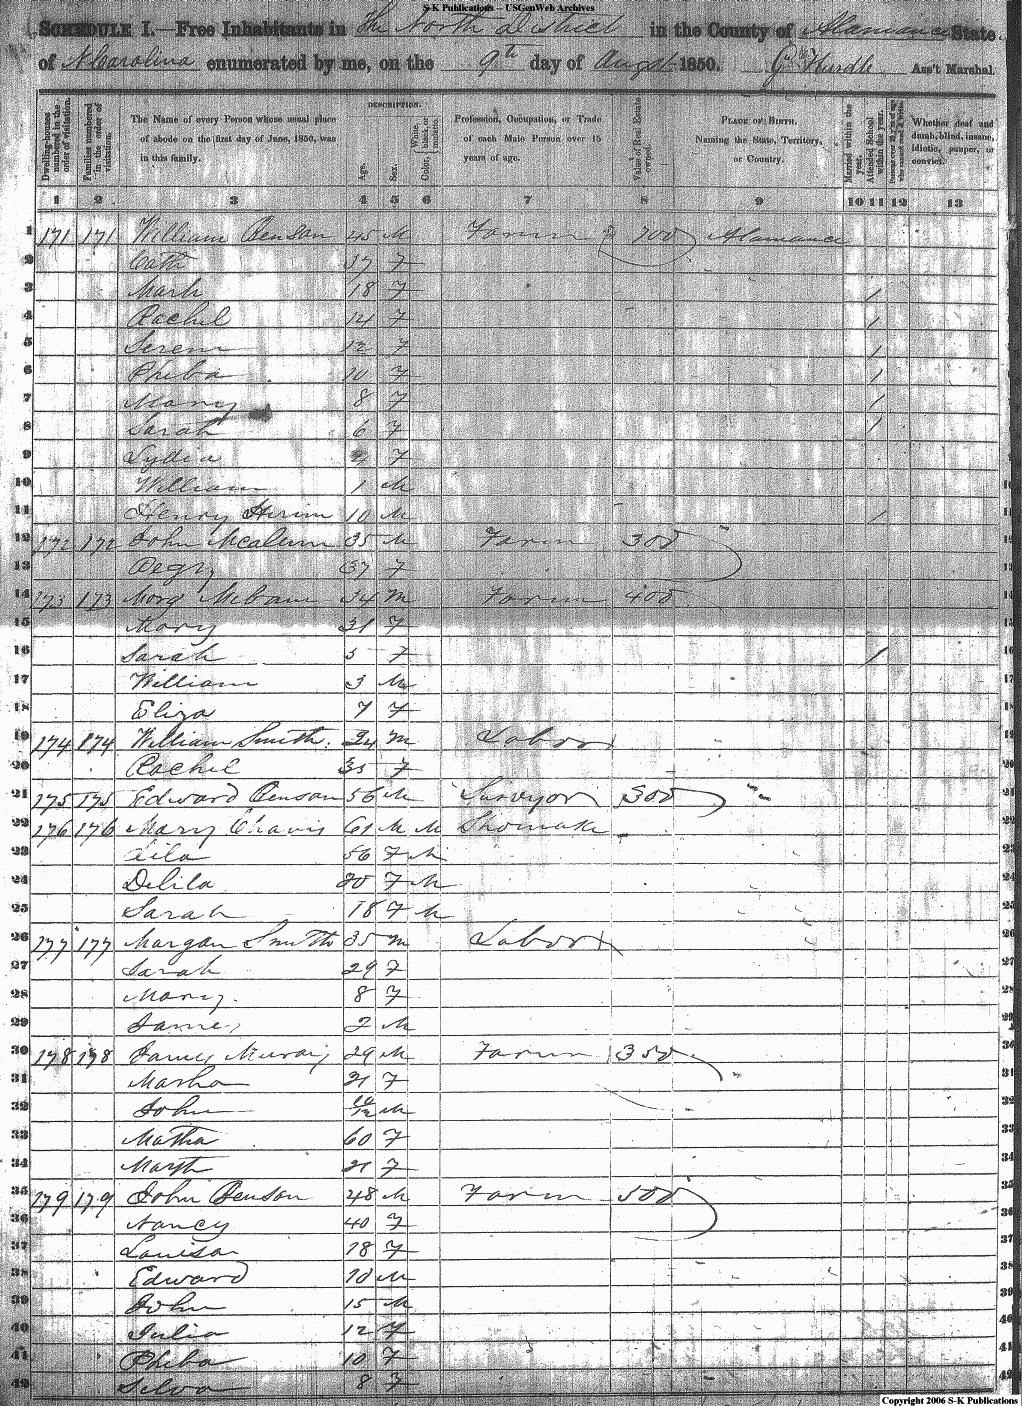 S-K Publications – USGenWeb Archives
SCHEDULE I.—Free Inhabitants in The North District in the County of Alamance State
of N Carolina enumerated by me, on the 9th day of August 1850. Hurdle Ass't Marshal.
Dwelling-houses numbered in the order of visitation.
Families numbered in the order of visitation.
The Name of every Person whose usual place of abode on the first day of June, 1850, was in this family.
DESCRIPTION.
Age.
Sex.
Color, White, black, or mulatto.
Profession, Occupation, or Trade of each Male Person over 15 years of age.
Value of Real Estate owned.
PLACE OF BIRTH. Naming the State, Territory, or Country.
Married within the year.
Attended School within the year.
Persons over 20 y'rs of age who cannot read & write.
Whether deaf and dumb, blind, insane, idiotic, pauper, or convict.
1 2 3 4 5 6 7 8 9 10 11 12 13
1 171 171 William Benson 45 M Farm 700 Alamance
2 Cath 37 F
3 18 F 1
4 Rachel 14 F 1
5 12 F 1
6 Pheba 10 F 1
7 Mary 8 F 1
8 Sarah 6 F 1
9 Lydia F
10 William 1 M
11 Henry Hiram 10 M 1
12 172 172 John 35 M Farm 300
13 37 F
14 173 173 Mebane 34 M Farm 400
15 Mary 31 F
16 Sarah 5 F 1
17 William 3 M
18 Eliza 7 F
19 174 174 William Smith 24 M Labor
20 Rachel 35 F
21 175 175 Edward Benson 56 M Surveyor 300
22 176 176 Mary Chavis 61 M M Shomake
23 56 F M
24 Delila 20 F M
25 Sarah 18 F M
26 177 177 Morgan Smith 35 M Labor
27 Sarah 29 F
28 Mary 8 F
29 James 2 M
30 178 178 29 M Farm 350
31 21 F
32 John 10/12 M
33 Matha 60 F
34 21 F
35 179 179 John Benson 48 M Farm 500
36 Nancy 40 F
37 Louisa 18 F
38 Edward M
39 John 15 M
40 Julia 12 F
41 Pheba 10 F
42 8 F
Copyright 2006 S-K Publications